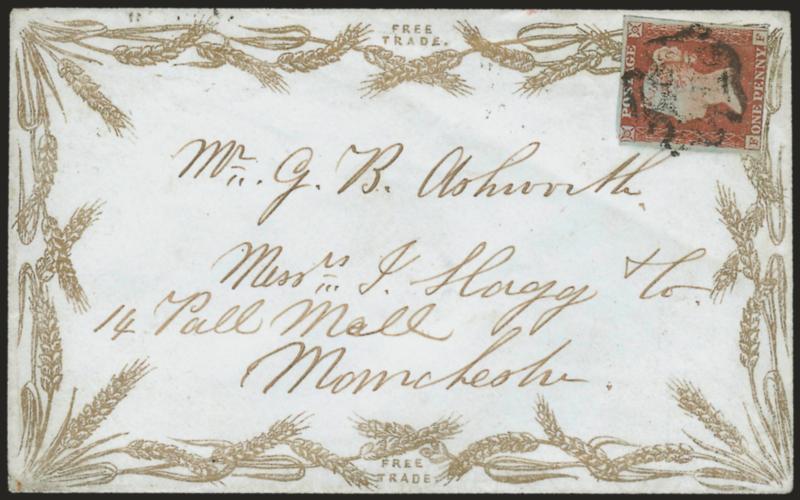 FREE
TRADE.
POSTAGE
ONE PENNY
F
E
Mr. G. B. Ashworth
Messrs J. Slagg & Co.
14 Pall Mall
Manchester.
FREE
TRADE.